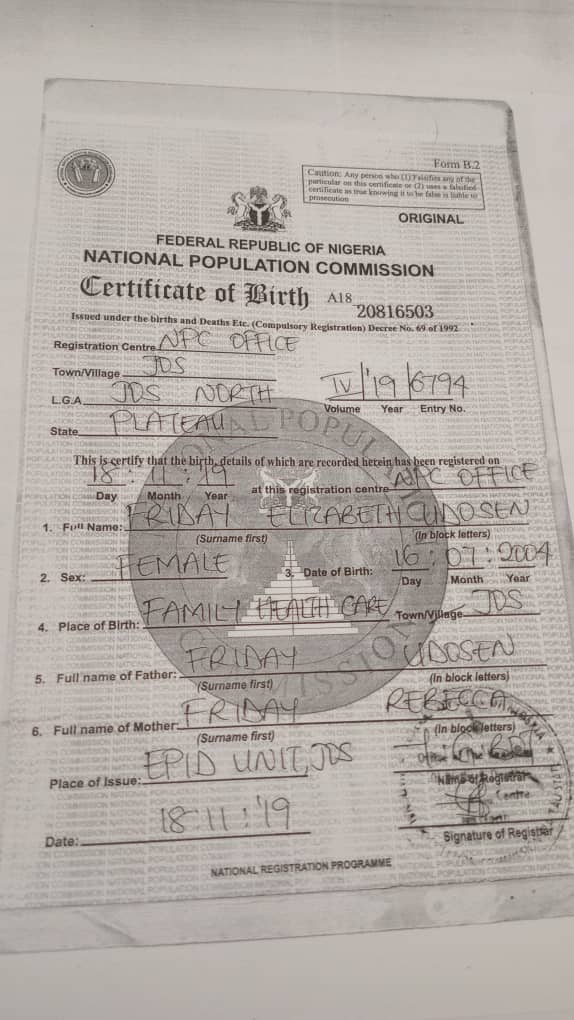 Form B.2
Caution: Any person who (1) Falsifies any of the
particular on this certificate or (2) uses a falsified
certificate as true knowing it to be false is liable to
prosecution
ORIGINAL
FEDERAL REPUBLIC OF NIGERIA
NATIONAL POPULATION COMMISSION
Certificate of Birth A18 20816503
Issued under the births and Deaths Etc. (Compulsory Registration) Decree No. 69 of 1992
Registration Centre NPC OFFICE
Town/Village JOS
L.G.A. JOS NORTH
IV '19 6794
Volume Year Entry No.
State PLATEAU
This is certify that the birth, details of which are recorded herein has been registered on
18 : 11 : 19 at this registration centre NPC OFFICE
Day Month Year
1. Full Name: FRIDAY ELIZABETH UDOSEN
(Surname first) (In block letters)
2. Sex: FEMALE 3. Date of Birth: 16 : 07 : 2004
Day Month Year
4. Place of Birth: FAMILY HEALTH CARE Town/Village JOS
5. Full name of Father: FRIDAY UDOSEN
(Surname first) (In block letters)
6. Full name of Mother: FRIDAY REBECCA
(Surname first) (In block letters)
Place of Issue: EPID UNIT, JOS
Name of Registrar
Centre
Date: 18:11:'19
Signature of Registrar
NATIONAL REGISTRATION PROGRAMME